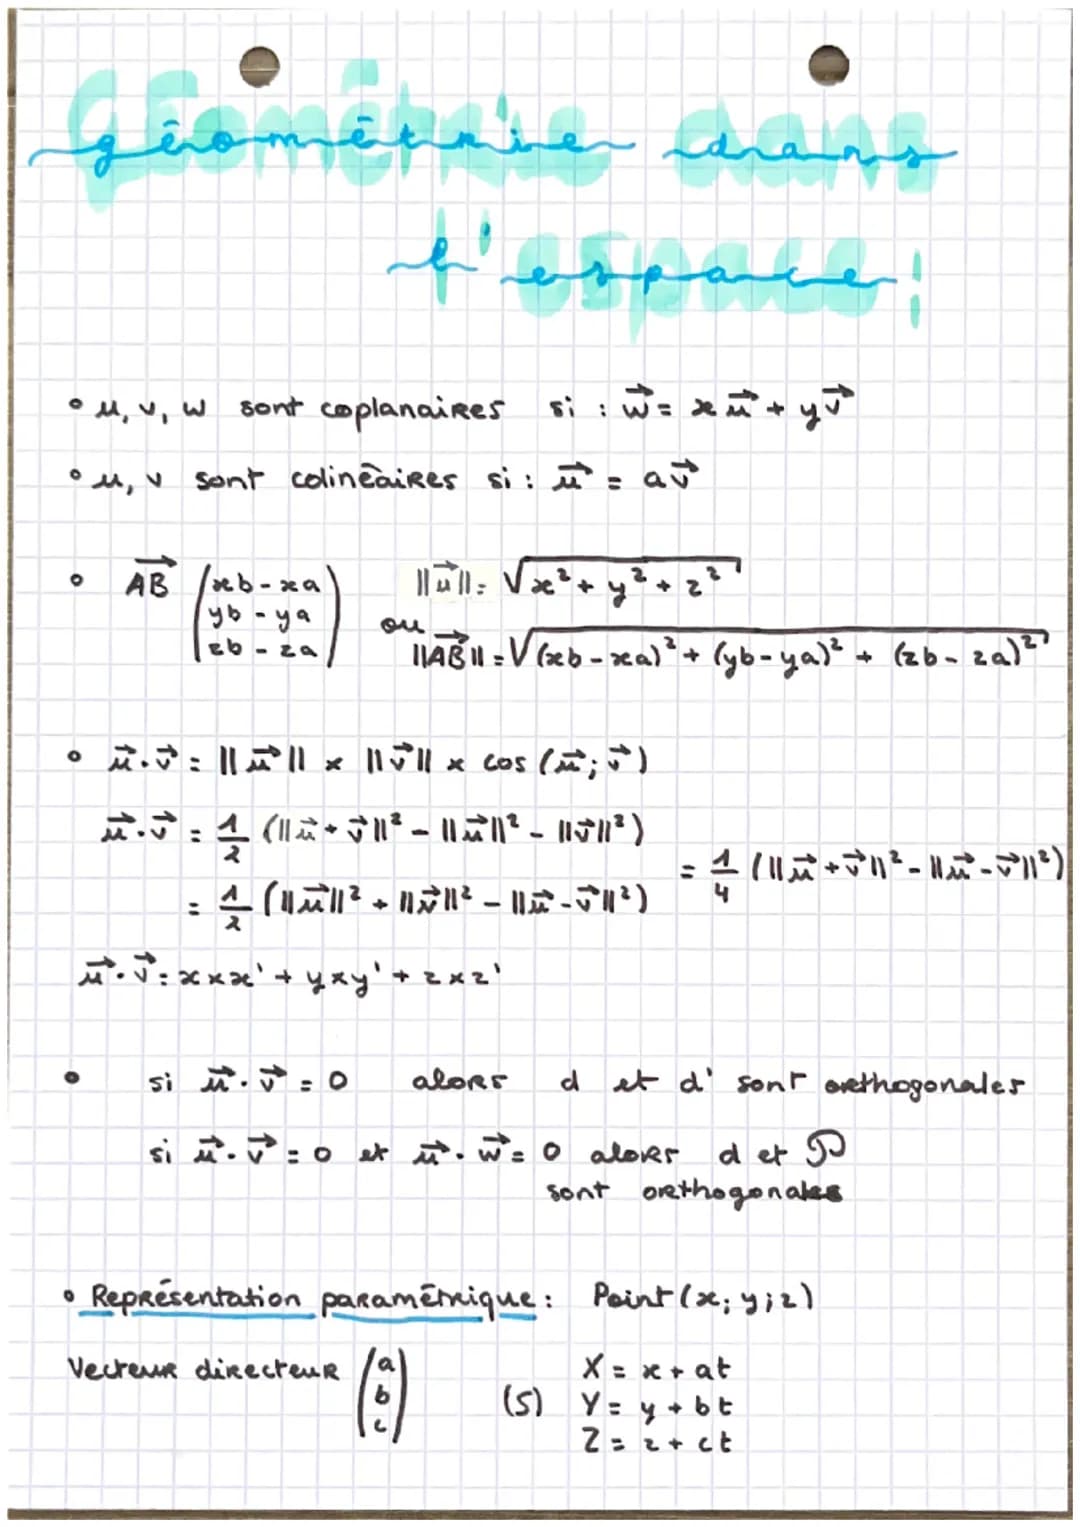 géométrie dans
l'espace :
• u, v, w sont coplanaires si : w⃗ = x u⃗ + y v⃗
• u, v sont colinéaires si : u⃗ = a v⃗
• AB⃗ (xb - xa   ||u⃗|| = √(x² + y² + z²)
yb - ya   ou
zb - za)   ||AB⃗|| = √((xb - xa)² + (yb - ya)² + (zb - za)²)
• u⃗ . v⃗ = ||u⃗|| × ||v⃗|| × cos (u⃗ ; v⃗)
u⃗ . v⃗ = 1/2 (||u⃗ + v⃗||² - ||u⃗||² - ||v⃗||²)
= 1/2 (||u⃗||² + ||v⃗||² - ||u⃗ - v⃗||²)   = 1/4 (||u⃗ + v⃗||² - ||u⃗ - v⃗||²)
u⃗ . v⃗ = x × x' + y × y' + z × z'
• si u⃗ . v⃗ = 0 alors d et d' sont orthogonales
si u⃗ . v⃗ = 0 et u⃗ . w⃗ = 0 alors d et P
sont orthogonales
• Représentation paramétrique : Point (x ; y ; z)
Vecteur directeur (a   X = x + at
b   (S) Y = y + bt
c)   Z = z + ct